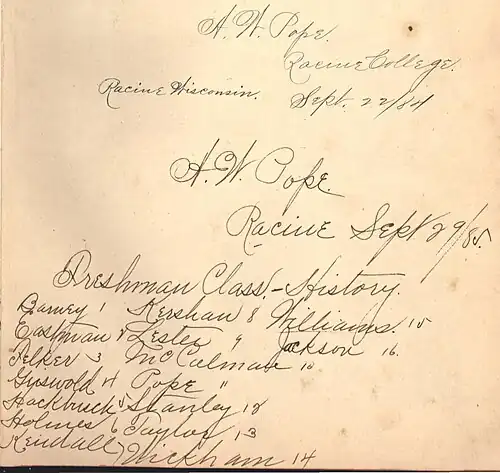 A. W. Pope.
Racine College.
Racine Wisconsin.
Sept. 22/84
A. W. Pope.
Racine Sept 29/85.
Freshman Class.-History.
Barney 1 Kershaw 8 Williams. 15
Eastman 2 Lester 9 Jackson 16.
Felker 3 McCalman 10
Griswold 4 Pope "
Hackbusch 5 Stanley 12
Holmes 6 Taylor 13
Kendall 7 Wickham 14